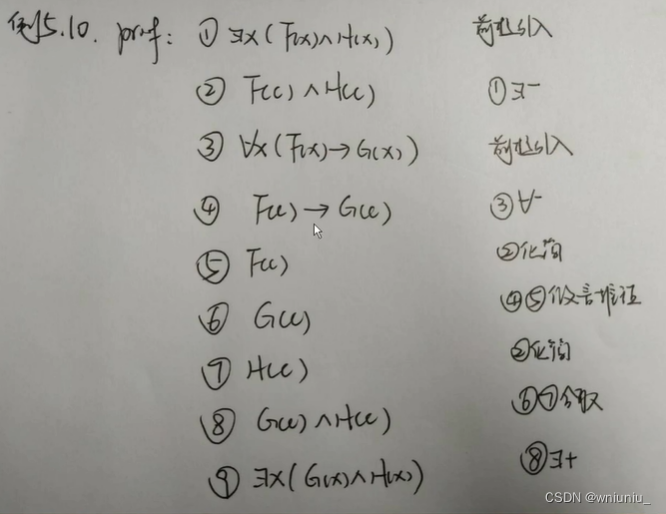 例5.10. prof: ① ∃x(F(x)∧H(x)) 前提引入
② F(c)∧H(c) ①∃-
③ ∀x(F(x)→G(x)) 前提引入
④ F(c)→G(c) ③∀-
⑤ F(c) ②化简
⑥ G(c) ④⑤假言推理
⑦ H(c) ②化简
⑧ G(c)∧H(c) ⑥⑦合取
⑨ ∃x(G(x)∧H(x)) ⑧∃+
CSDN @wniuniu_